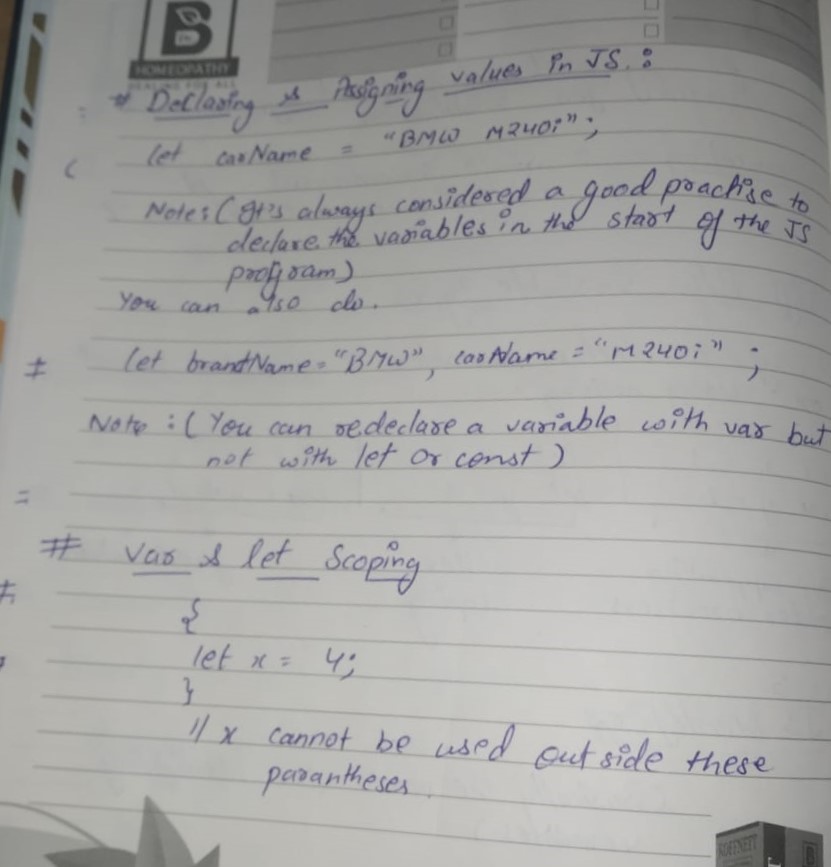 B
HOMEOPATHY
HEALING FOR ALL
# Declaring & Assigning values in JS. :
let carName = "BMW M240i";
Note: (It's always considered a good practise to
declare the variables in the start of the JS
program)
You can also do.
let brandName = "BMW", carName = "M240i" ;
Note : ( You can redeclare a variable with var but
not with let or const )
# Var & let Scoping
{
let x = 4;
}
// x cannot be used outside these
parantheses.